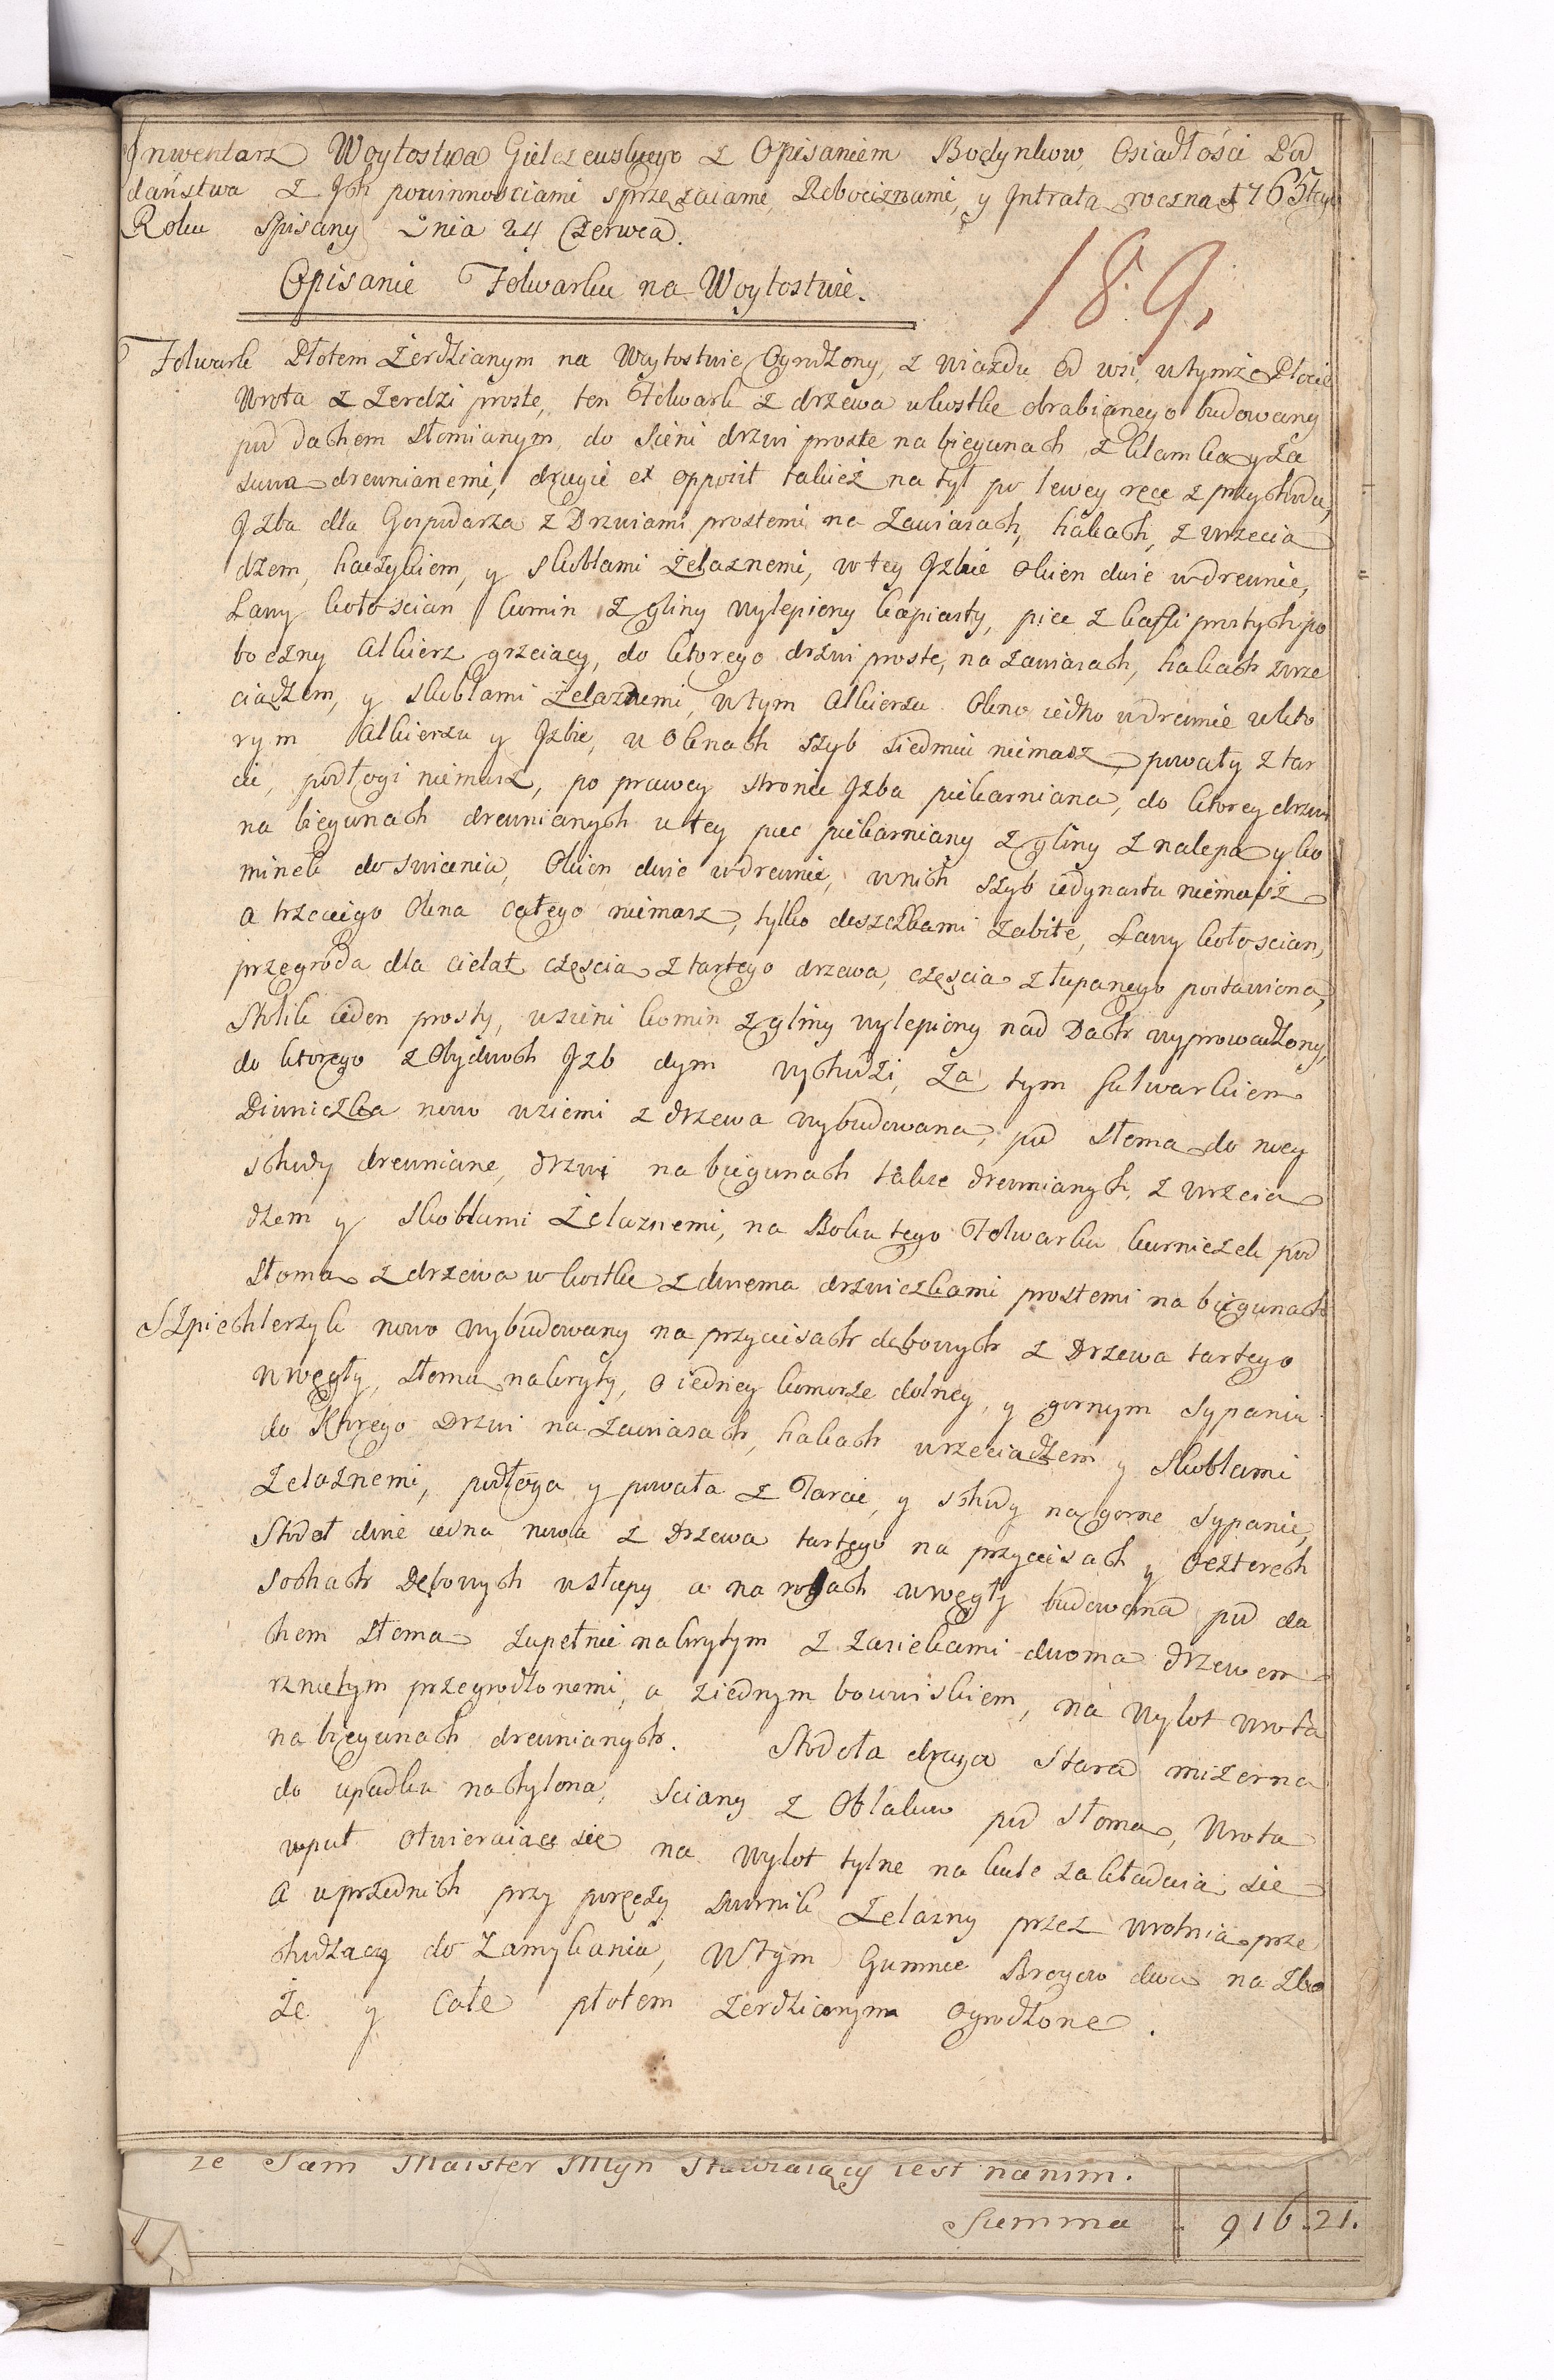 Jnwentarz Woytostwa Gielczewskiego z Opisaniem Budynkow Osiadłości Pod
daństwa z Jch powinnosciami sprzężaiami, Robociznami, y Jntratą roczną 1765tego
Roku spisany Dnia 24 Czerwca.
189.
Opisanie Folwarku na Woytostwie.
Folwark Płotem żerdzianym na Woytostwie Ogrodzony, z wiazdu od wsi, w tymże Płocie
Wrota z żerdzi proste, ten Folwark z drzewa w kostkę obrabianego budowany
pod dachem słomianym, do sieni drzwi proste na biegunach z klamką y za
suwą drewnianemi, drugie ex opposit takież na tył po lewey ręce z przychodu,
Jzba dla Gospodarza z Drzwiami prostemi na zawiasach, hakach, z wrzecią
dzem, haczykiem, y skoblami żelaznemi, w tey Jzbie okien dwie w drewnie,
Ławy koło scian komin z gliny wylepiony kapiasty, piec z kafli prostych po
boczny Alkierz grzeiący, do ktorego drzwi proste, na zawiasach, hakach z wrze
ciądzem, y skoblami żelaznemi, w tym Alkierzu Okno iedno w drewnie w kto
rym Alkierzu y Jzbie, w Oknach szyb siedmiu niemasz, powały z tar
cic, podłogi niemasz, po prawey stronie Jzba piekarniana, do ktorey drzwi
na biegunach drewnianych w tey piec piekarniany z gliny z nalepą y ko
minek do swicenia, Okien dwie w drewnie, w nich szyb iedynastu niemasz
a trzeciego Okna całego niemasz, tylko deszczkami zabite, Ławy koło scian,
przegroda dla cieląt częscią z tartego drzewa, częscią z łupanego postawiona,
Stolik ieden prosty, w sieni komin z gliny wylepiony nad Dach wyprowadzony,
do ktorego z Obydwoch Jzb dym wychodzi, Za tym folwarkiem
Piwniczka nowo w ziemi z drzewa wybudowana, pod słomą do niey
schody drewniane, drzwi na biegunach także drewnianych, z wrzecią
dzem y skoblami żelaznemi, na Boku tego Folwarku kurniczek pod
słomą z drzewa w kostkę z dwiema drzwiczkami prostemi na biegunach
Szpichlerzyk nowo wybudowany na przyciesach dębowych z Drzewa tartego
w węgły, słomą nakryty, o iedney komorze dolney, y gornym sypaniu
do Ktorego Drzwi na zawiasach, hakach wrzeciądzem y skoblami
żelaznemi, podłoga y powała z Tarcic, y schody na gorne sypanie,
Stodoł dwie iedna nowa z Drzewa tartego na przyciesach y czterech
sochach Dębowych w słupy a na rogach w węgły budowana pod da
hem słomą zupełnie nakrytym z zasiekami dwoma drzewem
rzniętym przegrodzonemi, a z iednym boiwiskiem, na wylot wrota
na biegunach drewnianych. Stodoła druga stara mizerna
do upadku nachylona, sciany z Obłakow pod słomą, wrota
wpuł otwieraiące się na wylot tylne na kule zakładaią się
a u przednich przy poręczy swornik żelazny przez wrotnią prze
chodzący do zamykania, W tym Gumnie Brogow dwa na zbo
że y Całe płotem żerdzianym ogrodzone.
że Sam Maister Młyn Stawiaiący iest nanim.
Summa 916.21.